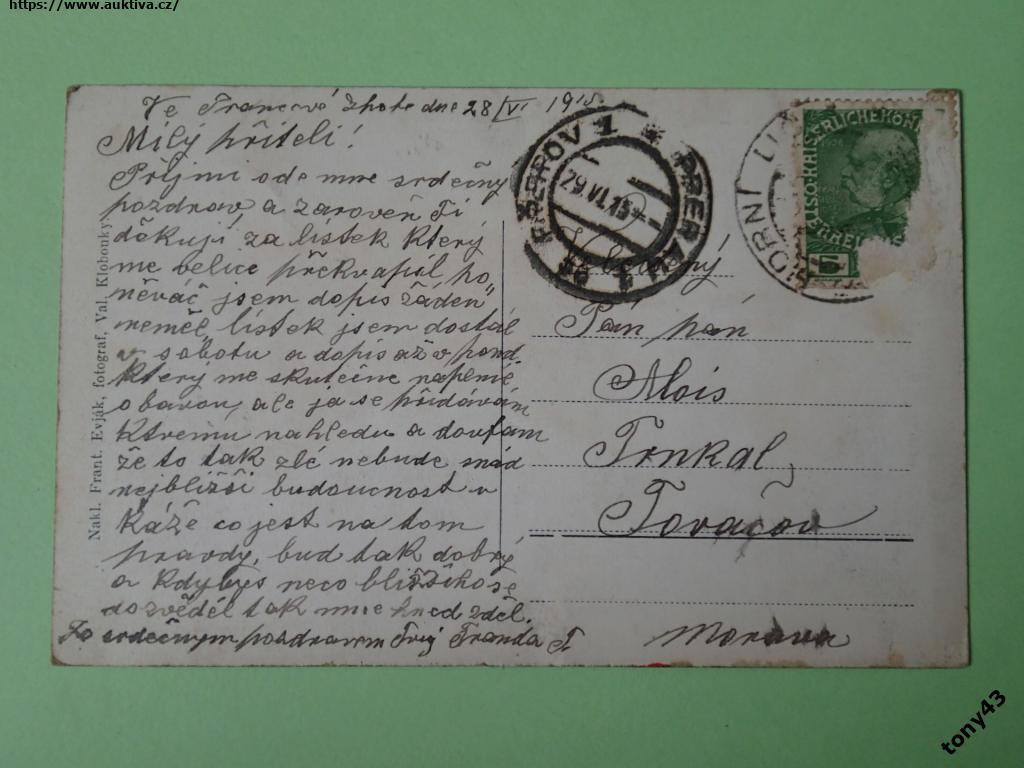 https://www.auktiva.cz/
Ve Francové Lhotě dne 28/VI 1915
Milý příteli!
Přijmi ode mne srdečný
pozdrav a zároveň Ti
děkuji za lístek který
me velice překvapil po„
něváč jsem dopis žáden
neměl, lístek jsem dostal
v sobotu a dopis až v pond.
který me skutečne naplnil
obavou, ale ja se přidávám
ktvemu nahledu a doufam
že to tak zlé nebude snád
nejbližší budoucnost u
káže co jest na tom
pravdy, bud tak dobrý
a kdybys neco bližšího se
dozvěděl tak mne hned zděl.
Se srdečným pozdravem Tvůj Franda T
Nakl. Frant. Evják, fotograf, Val. Klobouky
PŘEROV 1 * PRERAU 1
29.VI.15
HORNÍ LI
5
Pán pán
Alois
Trnkal
Tovačov
Morava
tony43